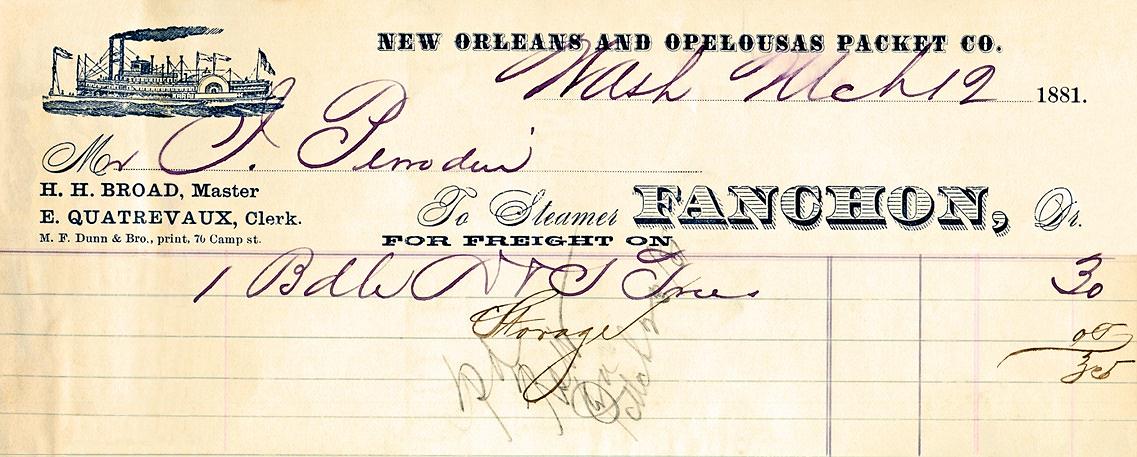 NEW ORLEANS AND OPELOUSAS PACKET CO.
Wash Mch 12 1881.
Mr J. Perrodin
H. H. BROAD, Master
E. QUATREVAUX, Clerk.
M. F. Dunn & Bro., print, 76 Camp st.
To Steamer FANCHON, Dr.
FOR FREIGHT ON
1 Bdle Trees 30
Storage 05
35